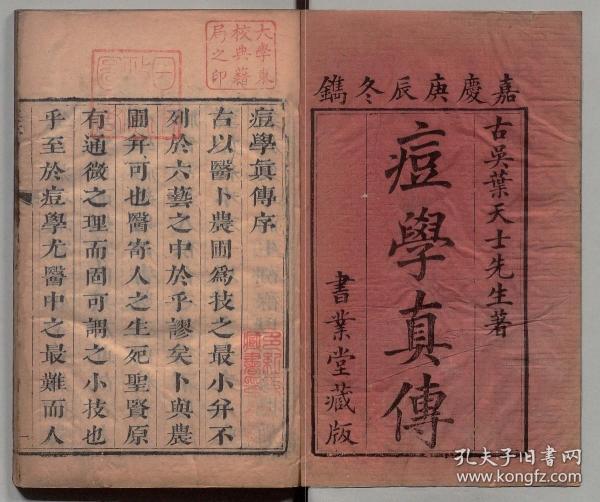 嘉慶庚辰冬鐫
古吳葉天士先生著
痘學真傳
書業堂藏版
痘學眞傳序
古以醫卜農圃爲技之最小弁不
列於六藝之中於乎謬矣卜與農
圃弁可也醫寄人之生死聖賢原
有通微之理而固可謂之小技也
乎至於痘學尤醫中之最難而人
大學東
校典籍
局之印
孔夫子旧书网
www.kongfz.com